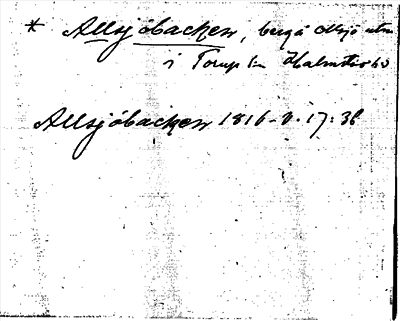 * Allsjöbacken, berg å Allsjö utm
i Torup sn Halmstads hd
Allsjöbacken 1816-V. 17: 38